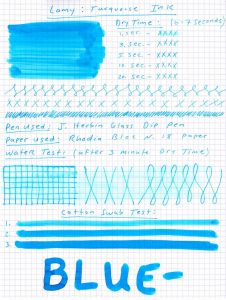 Lamy: Turquoise Ink
Dry Time: (6-7 seconds)
1. sec - XXXX
3. sec - XXXX
5. sec - XXXX
10. sec - XXXX
20. sec - XXXX
Pen Used: J. Herbin Glass Dip Pen
Paper used: Rhodia Bloc N. 18 Paper
Water Test: (after 3 minute Dry Time)
Cotton Swab Test:
1.
2.
3.
BLUE-